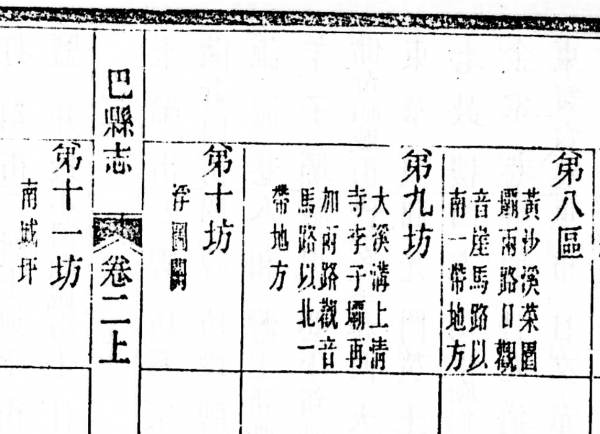 第八區
黃沙溪菜園
壩兩路口觀
音崖馬路以
南一帶地方
第九坊
大溪溝上清
寺李子壩再
加兩路觀音
馬路以北一
帶地方
第十坊
浮圖關
巴縣志
卷二上
第十一坊
南城坪